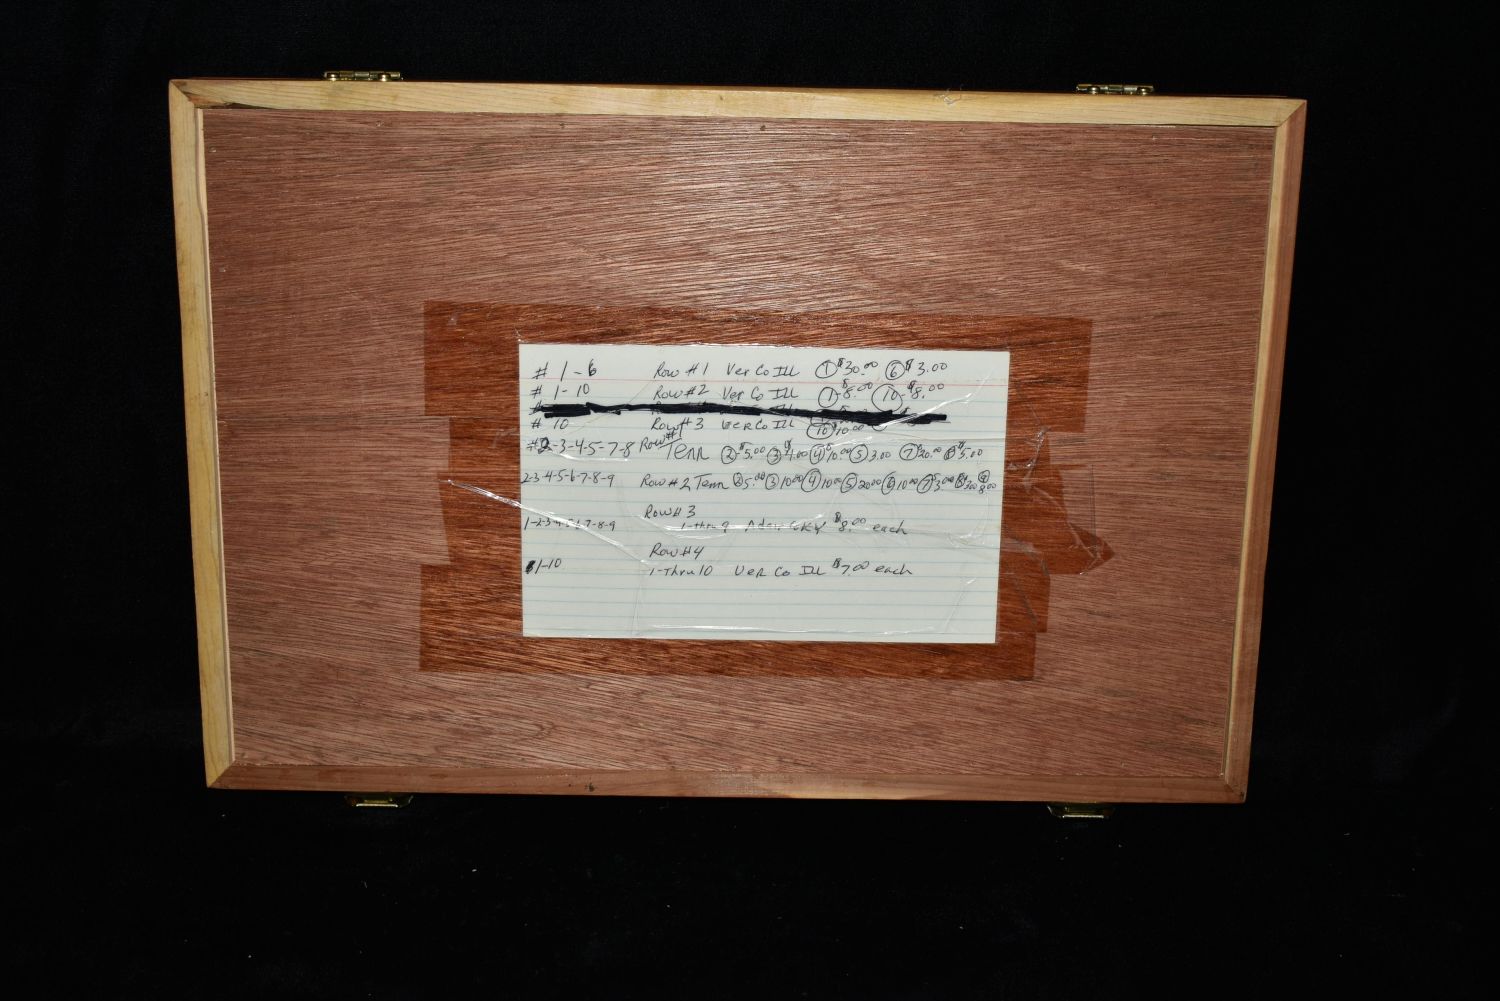 # 1-6 Row #1 Ver Co Ill ① $30.00 ⑥ $3.00
# 1-10 Row #2 Ver Co Ill ①-$8.00 ⑩-$8.00
# 10 Row #3 Ver Co Ill ⑩ $10.00
#2-3-4-5-7-8 Row #1 Tenn ②-$5.00 ③ ④ $10.00 ⑤ 3.00 ⑦ $20.00 ⑧ $5.00
2-3-4-5-6-7-8-9 Row #2 Tenn ② 5.00 ③ 10.00 ④ 10.00 ⑤ 20.00 ⑥ 10.00 ⑦ $3.00 ⑧ 3.00 ⑨ 8.00
Row #3
1-2-3-4-5-6-7-8-9 1-thru 9 $8.00 each
Row #4
1-10 1-Thru 10 Ver Co Ill $7.00 each